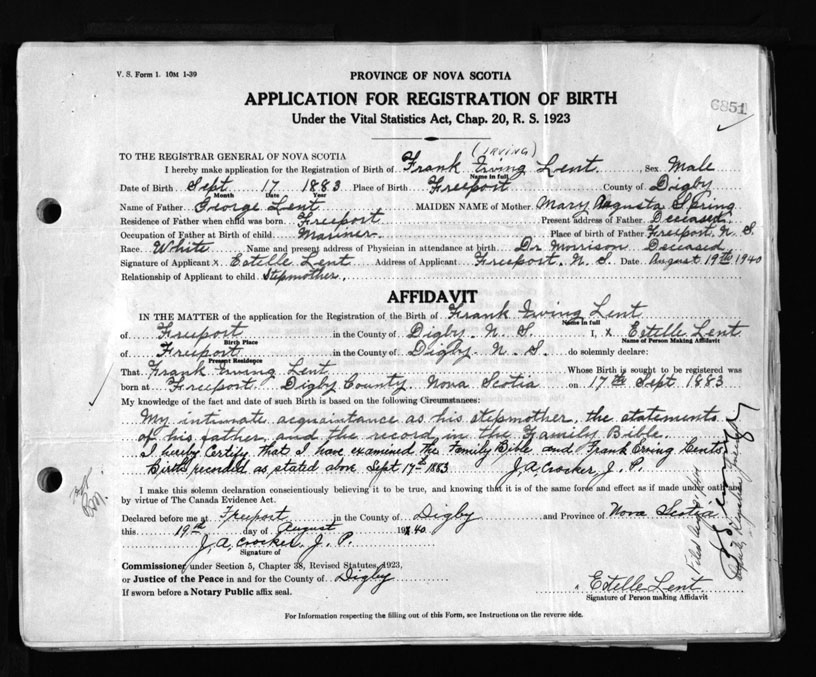 V. S. Form 1. 10M 1-39
PROVINCE OF NOVA SCOTIA
6851
APPLICATION FOR REGISTRATION OF BIRTH
Under the Vital Statistics Act, Chap. 20, R. S. 1923
(IRVING)
TO THE REGISTRAR GENERAL OF NOVA SCOTIA
I hereby make application for the Registration of Birth of Frank Irving Lent, Sex Male
Name in full
Date of Birth Sept 17 1883 Place of Birth Freeport County of Digby
Month Date Year
Name of Father George Lent MAIDEN NAME of Mother Mary Augusta Spring
Residence of Father when child was born Freeport Present address of Father Deceased.
Occupation of Father at Birth of child Mariner. Place of birth of Father Freeport N. S.
Race White Name and present address of Physician in attendance at birth Dr Morrison Deceased
Signature of Applicant X Estelle Lent Address of Applicant Freeport. N. S. Date August 19th 1940
Relationship of Applicant to child Stepmother.
AFFIDAVIT
IN THE MATTER of the application for the Registration of the Birth of Frank Irving Lent
Name in full
of Freeport in the County of Digby. N. S. I, X Estelle Lent
Birth Place Name of Person Making Affidavit
of Freeport in the County of Digby N. S. do solemnly declare:
Present Residence
That Frank Irving Lent Whose Birth is sought to be registered was
born at Freeport. Digby County. Nova Scotia on 17th Sept 1883
My knowledge of the fact and date of such Birth is based on the following Circumstances:
My intimate acquaintance as his stepmother, the statements
of his father, and the record in the Family Bible.
I hereby Certify that I have examined the Family Bible and Frank Irving Lents
Birth recorded as stated above Sept 17th 1883 J. A. Crocker, J. P.
I make this solemn declaration conscientiously believing it to be true, and knowing that it is of the same force and effect as if made under oath and
by virtue of The Canada Evidence Act.
Declared before me at Freeport in the County of Digby and Province of Nova Scotia
this 19th day of August 1940
J. A. Crocker J. P.
Signature of
Commissioner under Section 5, Chapter 38, Revised Statutes 1923,
or Justice of the Peace in and for the County of Digby
If sworn before a Notary Public affix seal.
a Estelle Lent
Signature of Person making Affidavit
For Information respecting the filling out of this Form, see Instructions on the reverse side.